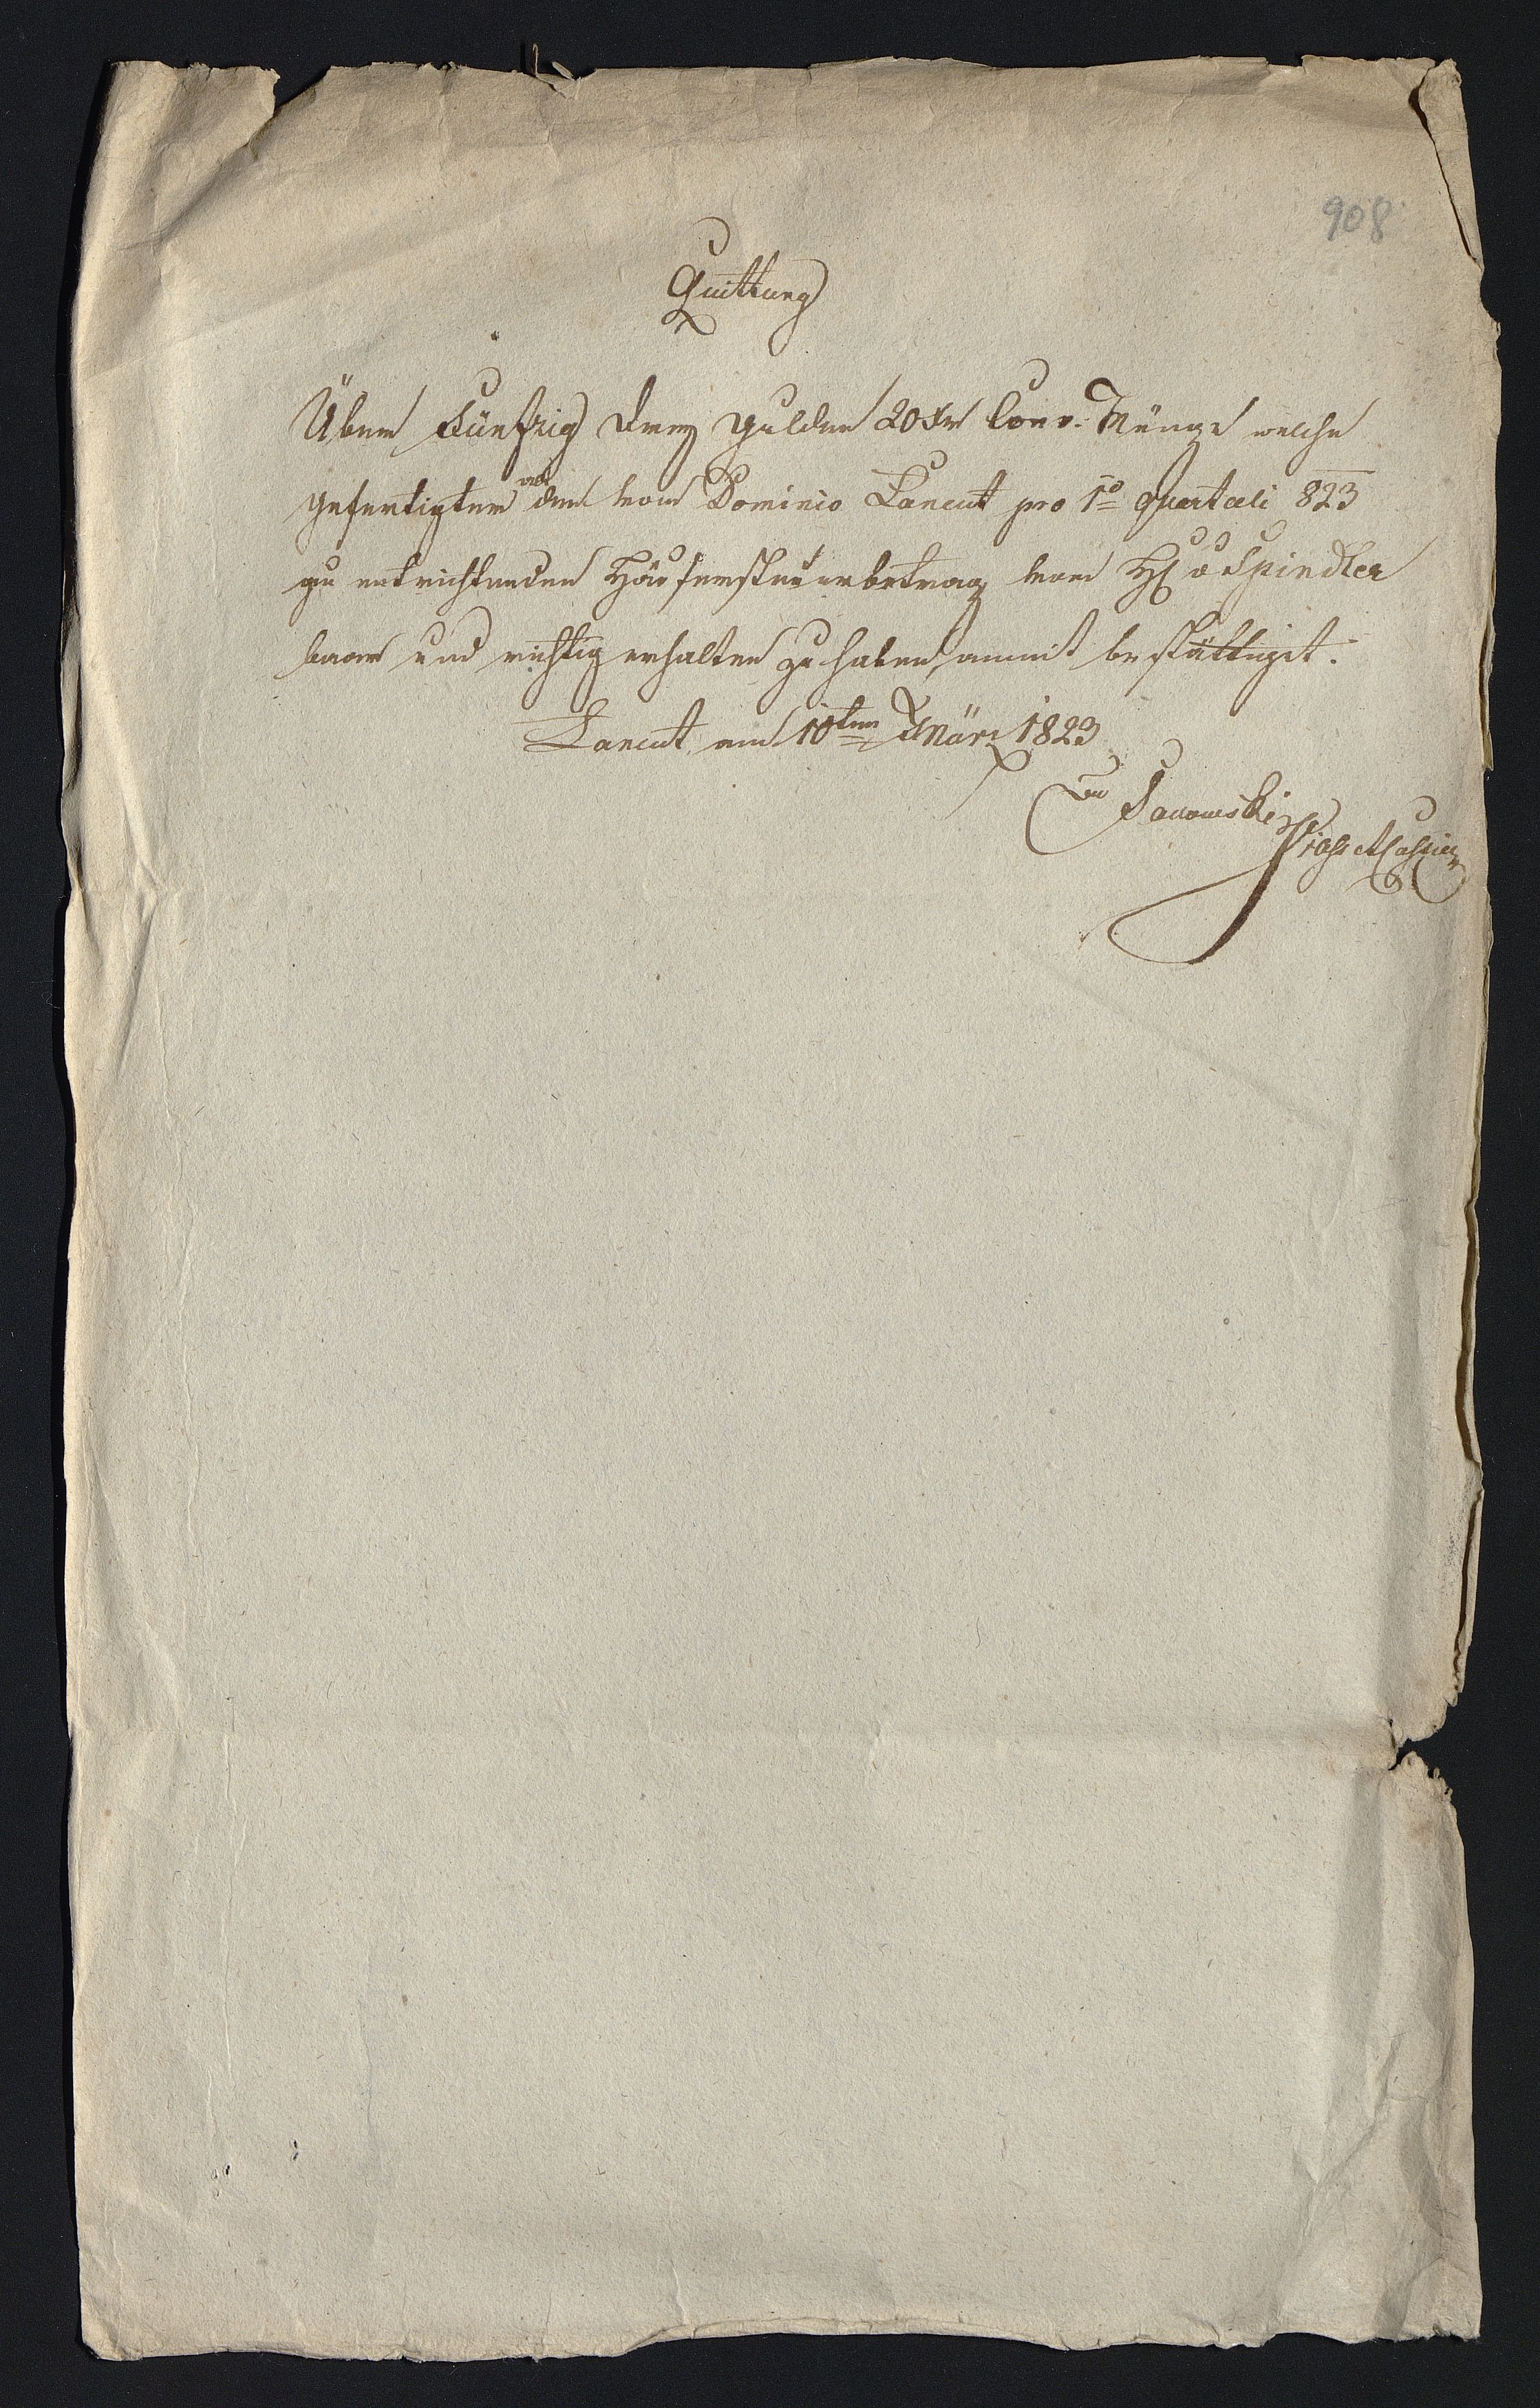 908
Quittung
Über Fünfzig Drey Gulden 20 Xr Conv. Münze welche
gefertigter als den vom Dominio Lancut pro 1o quartali 823
zu entrichtenden Häusersteuerbetrag vom H Spindler
baar und richtig erhalten zu haben, anmit bestättiget.
Lancut am 10ten März 1823